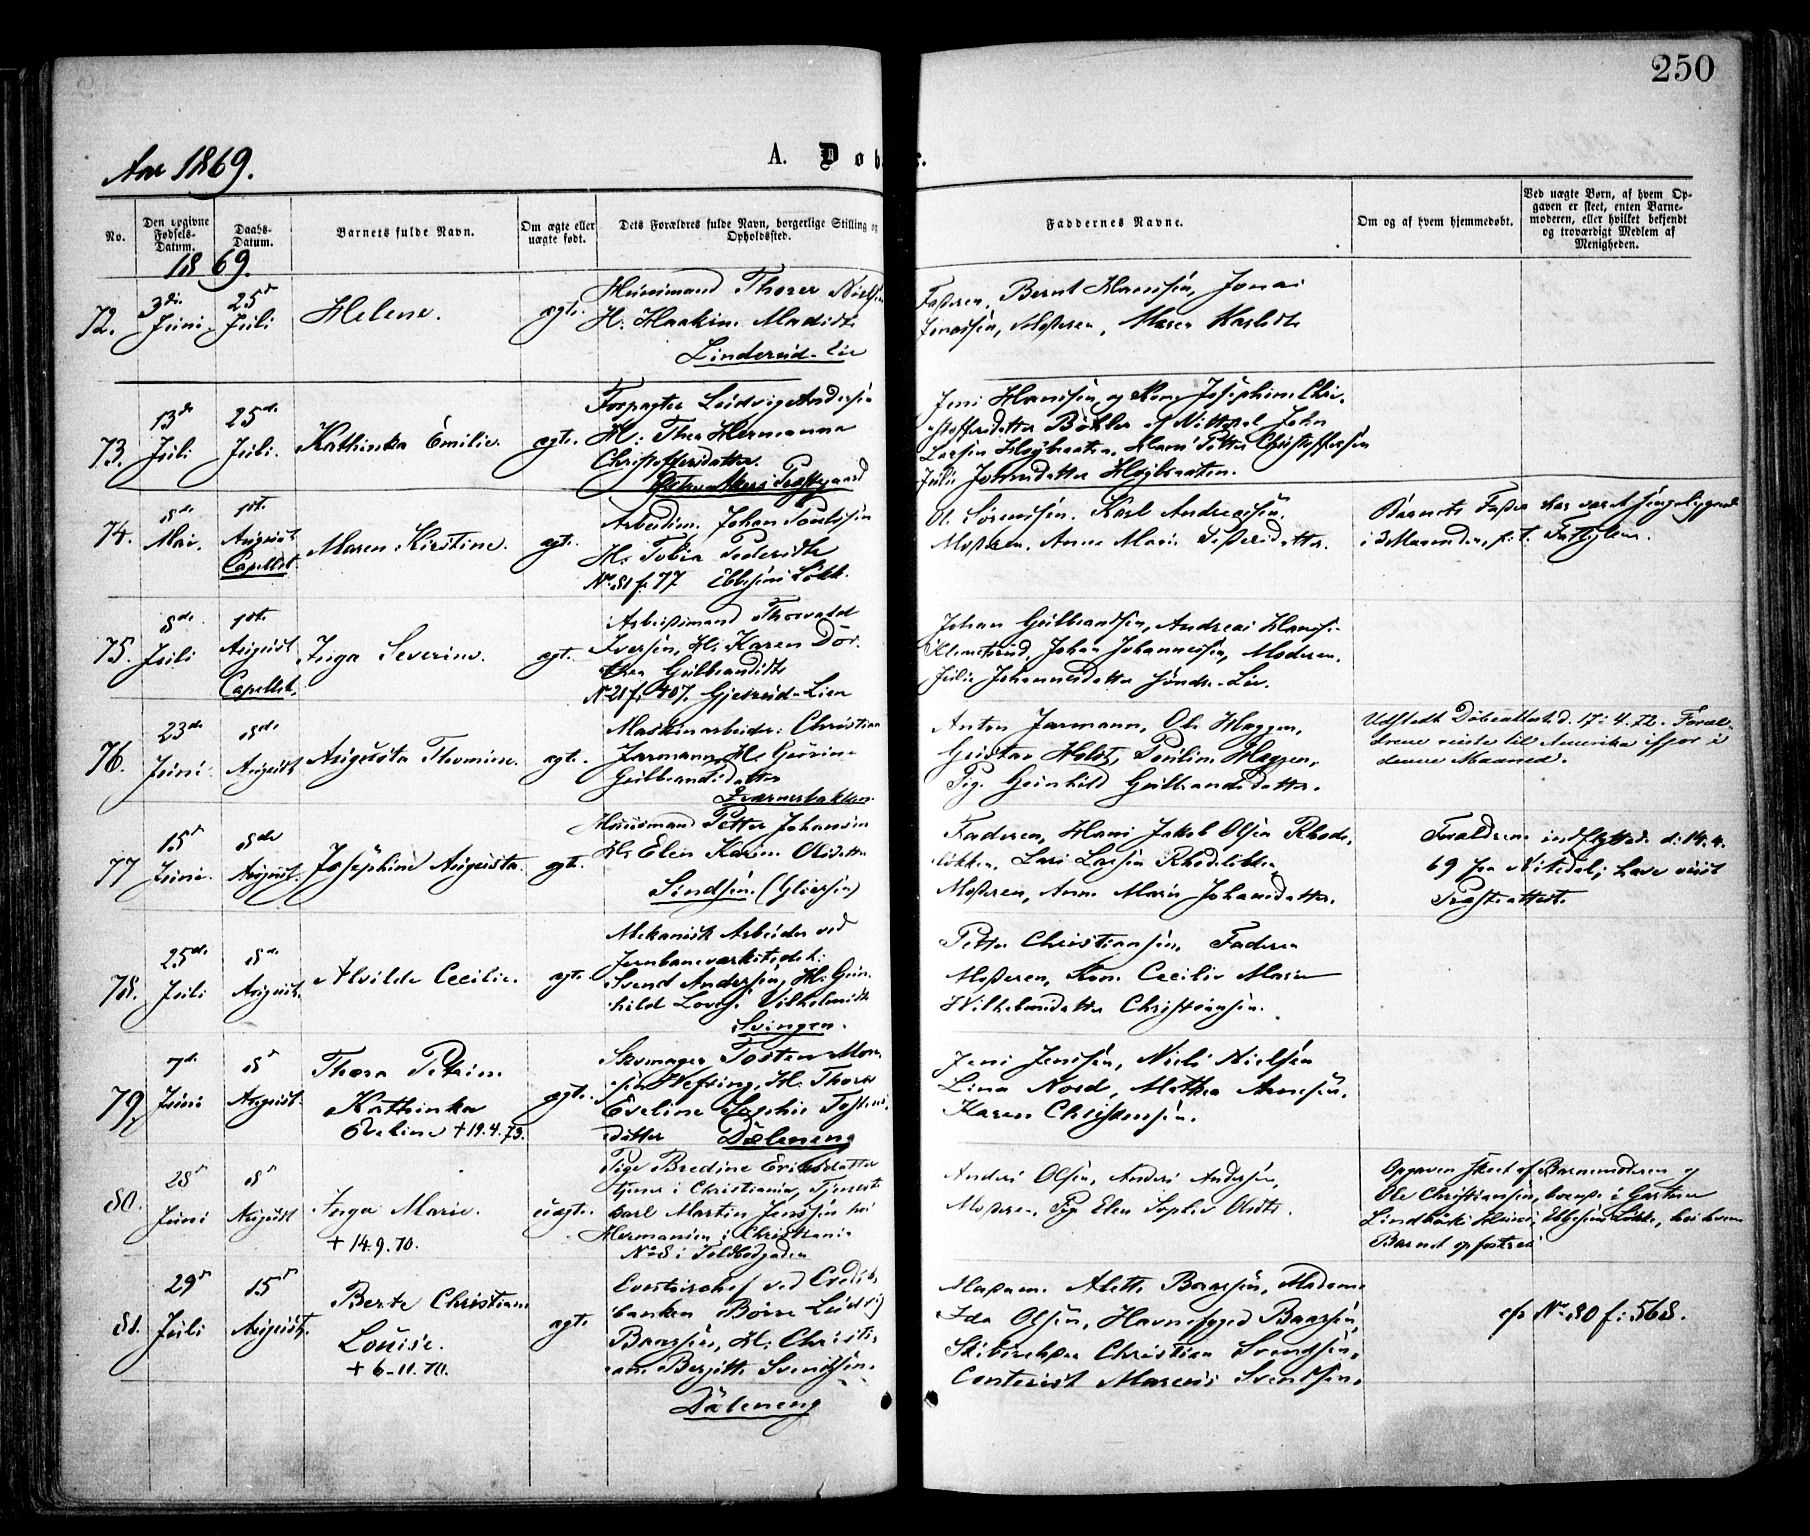 250
Aar 1869.
A. Døbte.
No.
Den opgivne Fødsels-Datum.
Daabs-Datum.
Barnets fulde Navn.
Om ægte eller uægte født.
Dets Forældres fulde Navn, borgerlige Stilling og Opholdssted.
Faddernes Navne.
Om og af hvem hjemmedøbt.
Ved uægte Børn, af hvem Opgaven er skeet, enten Barnemoderen, eller hvilket bekjendt og troværdigt Medlem af Menigheden.
1869.
72.
3die Juni
25d Juli
Helene.
ægte.
Huusmand Thorer Nielsen
H: Maadidtr
Lindereid-Lie
Faderen, Bernt Hansen, Jonas
Jonassen, Moderen, Maren Karlsdtr
73.
13d Juli
25de Juli.
Kathinka Emilie.
ægte.
Forpagter Ludvig Andersen
H: Thea Hermanna
Christoffersdatter.
Præstgaard
Jens Hansen og Kone Josephine Chri-
stoffersdatter Bøhler af Nittedal John
Larsen Høybraaten, Hans Petter Christoffersen
Julie Johnsdatter Høybraaten.
74.
8de Mai.
1ste August
Capellet
Maren Kirstine.
ægte.
Arbeidsm. Johan Poulssen
H: Tobia Pedersdtr
No 81 f. 77 Ebbesens Løkk.
O. Sørensen. Karl Andreassen.
Moderen. Anne Marie Pedersdatter.
Barnets Fader har været sengeliggende
i 3 Maaneder,
75.
8de Juli
1ste August
Capellet.
Inga Severine.
ægte.
Arbeidsmand Thorvald
Iversen, H: Karen Dor-
thea Gulbrandsdtr
No 21 f. 407. Gjetreid-Lien
Johan Gulbrandsen, Andreas Hanse-
Johan Johannessen, Moderen.
Julie Johannesdatter Søndre-Lie.
76.
23de Juni
8de August
Augusta Thomine.
ægte.
Maskinarbeider Christian
Jarmann, H: Gurine
Gulbrandsdatter
Kværnerbakken.
Anton Jarmann, Ole Haggen,
Gustav Holst, Pauline Haggen,
Pige Gunhild Gulbrandsdatter.
Udstedt Døbeattest d. 17-4.72. Foræl-
drene reiste til Amerika ifjor i
denne Maaned.
77
15d Juni.
8de August.
Josephine Augusta.
ægte.
Huusmand Petter Johansen
H: Elen Karine Olsdatter
Sindsen. (Gliersen)
Faderen, Hans Jakob Olsen Rhode-
løkken, Lars Larsen Rhodeløkken
Moderen, Anne Marie Johansdatter.
Forældrene indflyttede d: 14.4.
69 fra Nitedal; have viist
Præsteattest.
78.
25de Juli
8de August.
Alvilde Cecilie.
ægte.
Mekanisk Arbeider ved
Jernbaneværkstedet:
Svend Andersen, H: Gun-
hild Lovise Vilhelmsdtr
Svingen.
Petter Christiansen, Faderen
Moderen, Kone Cecilie Marie
Wilhelmsdatter Christiansen.
79.
7de Juni
8d August.
Thora Petrine
Kathinka
Eveline + 19.4.73.
ægte.
Skomager Tosten Mon-
sen Wefring, H: Thora
Eveline Sophie Tostens-
datter Dæleneng
Jens Jensen, Niels Nielsen
Lina Nord, Mathea Arnesen,
Karen Christensen.
80.
28d Juni
8d August
Inga Marie.
+ 14.9.70.
uægte.
Pige Bredine Eriksdatter
tjener i Christiania, Tjeneste
karl Martin Jenssen hos
Hermansen i Christiania
No 8 i Toldbodgaden
Anders Olsen, Anders Andersen,
Moderen, Pige Elen Sophie Olsdtr.
Opgaven skeet af Barnemoderen og
Ole Christiansen, boende i Gartner
Lindbæks Huus, Ebbesens Løkke, hos hvem
Barnet opfostres
81.
29d Juli
15d August.
Berte Christiane
Louise.
+ 6-11.70.
ægte.
ved Credit-
banken Børre Ludvig
Baarsen, H: Christi-
ane Bergitte Svendsen.
Dæleneng
Madam Alette Baarsen, Madame
Ida Olsen, Havnefoged Baarsen,
Skibsreder Christian Svendsen,
Contorist Marcus Svendsen.
cfr No 80 f: 568.